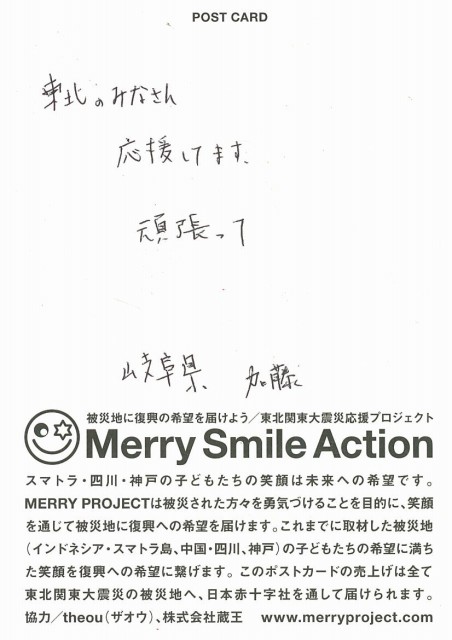 POST CARD
東北のみなさん
応援してます、
頑張って
岐阜県 加藤
被災地に復興の希望を届けよう／東北関東大震災応援プロジェクト
Merry Smile Action
スマトラ・四川・神戸の子どもたちの笑顔は未来への希望です。
MERRY PROJECTは被災された方々を勇気づけることを目的に、笑顔
を通じて被災地に復興への希望を届けます。これまでに取材した被災地
（インドネシア・スマトラ島、中国・四川、神戸）の子どもたちの希望に満ち
た笑顔を復興への希望に繋げます。このポストカードの売上げは全て
東北関東大震災の被災地へ、日本赤十字社を通して届けられます。
協力／theou（ザオウ）、株式会社蔵王 www.merryproject.com